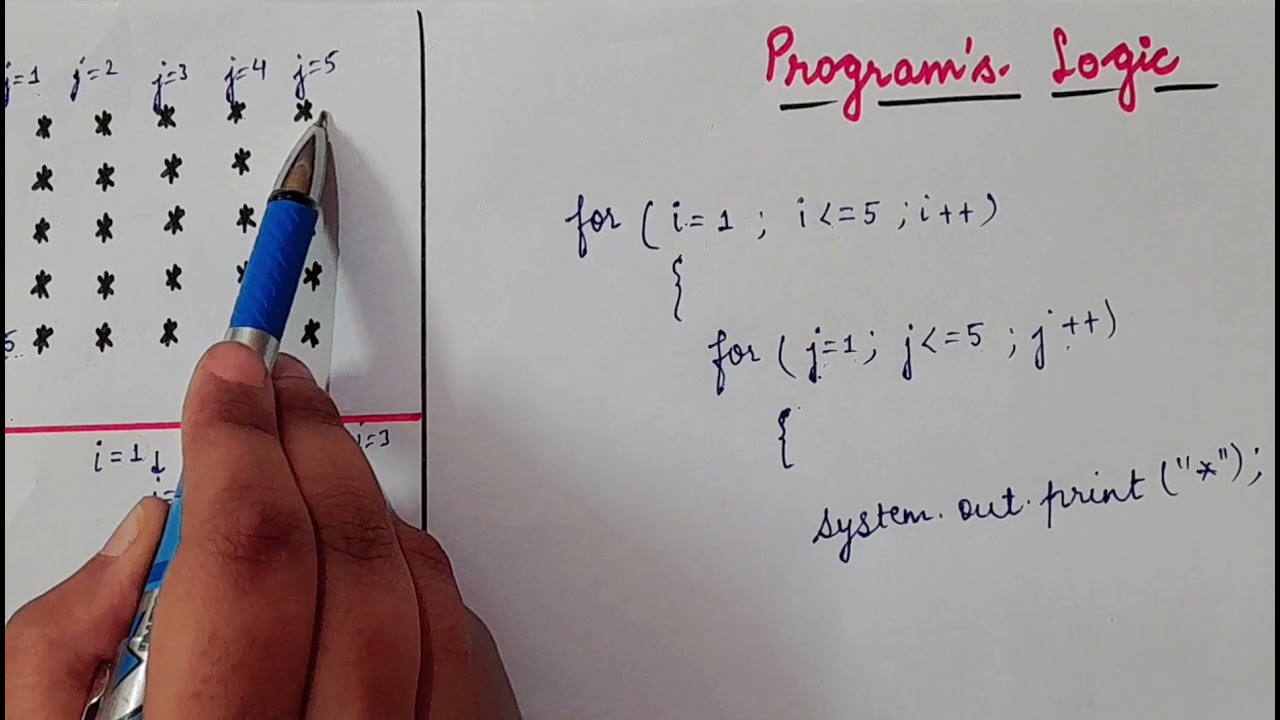 j=1 j=2 j=3 j=4 j=5
* * * * *
* * * *
* * * *
* * * *
5 * * * *
i=1↓
i=3
Program's. Logic
for ( i=1 ; i<=5 ; i++)
{
for ( j=1; j<=5 ; j++)
{
system.out.print ("*");